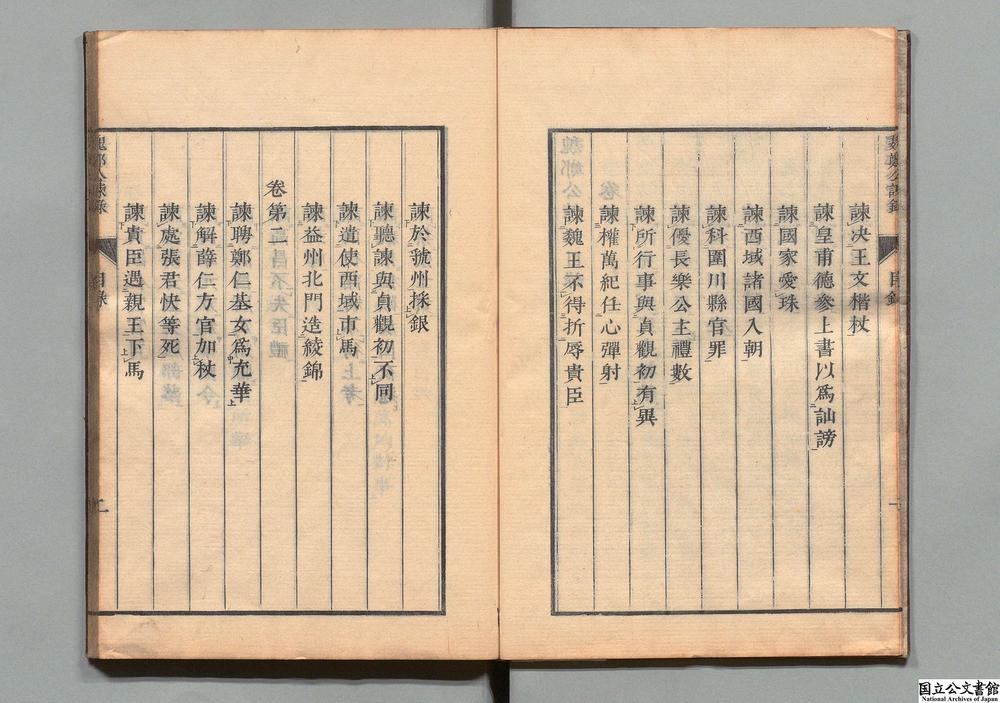 諫决王文楷杖
諫皇甫德參上書以爲訕謗
諫國家愛珠
諫西域諸國入朝
諫科圍川縣官罪
諫優長樂公主禮數
諫所行事與貞觀初有異
諫權萬紀任心彈射
諫魏王不得折辱貴臣
魏鄭公諫錄
目錄
諫於虢州採銀
諫聽諫與貞觀初不同
諫遣使西域市馬
諫益州北門造綾錦
卷第二
諫聘鄭仁基女爲充華
諫解薛仁方官加杖
諫處張君快等死
諫貴臣遇親王下馬
魏鄭公諫錄
目錄
二
国立公文書館
National Archives of Japan